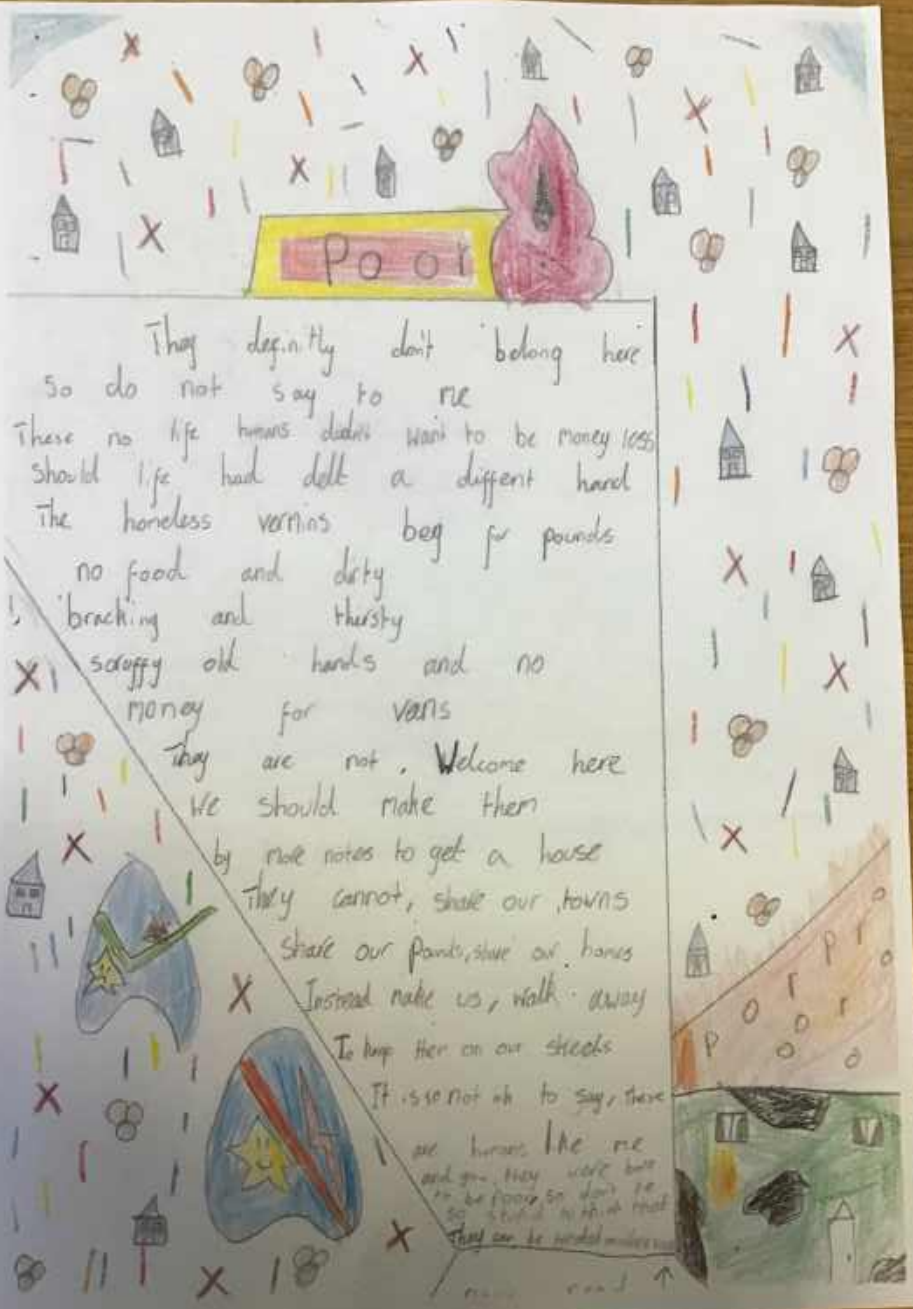 Poor
They definitly don't belong here
So do not say to me
These no life humans didn't want to be money less
Should life had delt a diffent hand
The homeless vermins beg for pounds
no food and dirty
bracking and thirsty
scruffy old hands and no
money for vans
They are not, Welcome here
We should make them
by more notes to get a house
They cannot, share our towns
share our pounds, share our homes
Instead make us, walk away
To keep them on our streets
It is so not ok to say, these
are humans like me
and you, they were born
to be poor, so don't be
so stupid to think that
They can be treated
Poor
Poor
read